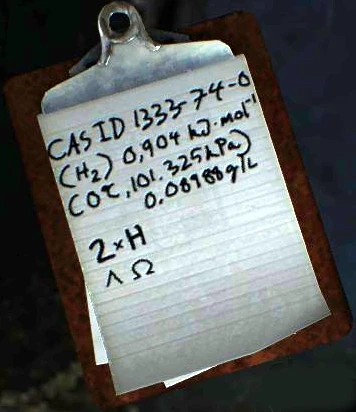 CAS ID 1333-74-0
(H₂) 0,904 kJ·mol⁻¹
(0℃, 101.325kPa)
0.08988g/L
2×H
Λ Ω